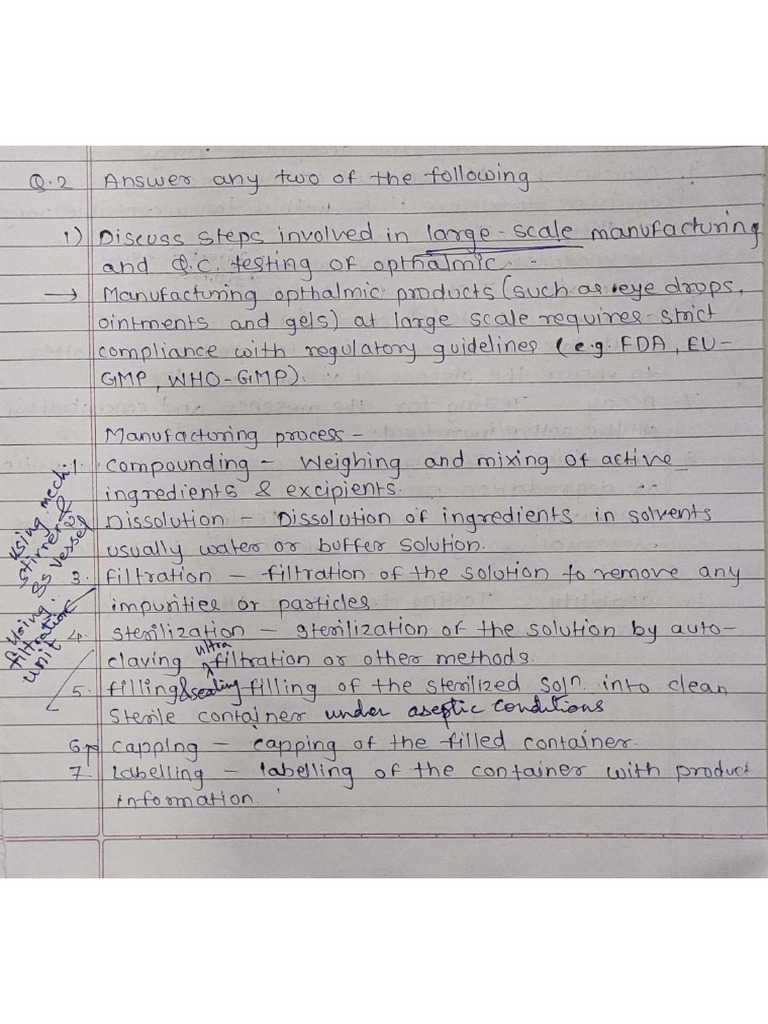 Q.2 Answer any two of the following
1) Discuss steps involved in large-scale manufacturing
and Q.C. testing of opthalmic.
→ Manufacturing opthalmic products (such as eye drops,
ointments and gels) at large scale requires strict
compliance with regulatory guidelines (e.g. FDA, EU-
GMP, WHO-GMP).
Manufacturing process -
1. Compounding - Weighing and mixing of active
ingredients & excipients.
2. Dissolution - Dissolution of ingredients in solvents
usually water or buffer solution.
3. filtration - filtration of the solution to remove any
impurities or particles.
4. sterilization - sterilization of the solution by auto-
claving ultra filtration or other methods.
5. filling & sealing - filling of the sterilized soln. into clean
sterile container under aseptic conditions
6. Capping - capping of the filled container.
7. Labelling - labelling of the container with product
information.
using mech.
stirrer &
SS vessel
Using
filtration
unit